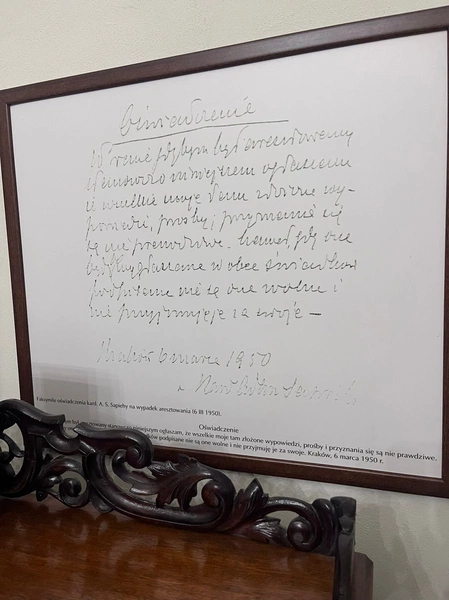 Oświadczenie
W razie gdybym był aresztowany
stanowczo niniejszem ogłaszam
że wszelkie moje tam złożone wy-
powiedzi, prośby i przyznanie się
są nie prawdziwe. Nawet gdy one
wygłaszane w obec świadków
podpisane nie są one wolne i
nie przyjmuję je za swoje —
Kraków 6 marca 1950
Sapieha
Faksymile oświadczenia kard. A. S. Sapiehy na wypadek aresztowania (6 III 1950).
Oświadczenie
był aresztowany stanowczo niniejszym ogłaszam, że wszelkie moje tam złożone wypowiedzi, prośby i przyznania się są nie prawdziwe.
podpisane nie są one wolne i nie przyjmuję je za swoje. Kraków, 6 marca 1950 r.